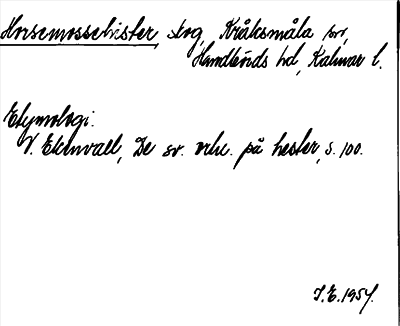 Horsemossehister, skog, Kråksmåla sn,
Handbörds hd, Kalmar l.
Etymologi:
V. Ekenvall, De sv. ortn. på hester, s. 100.
J.E. 1954.